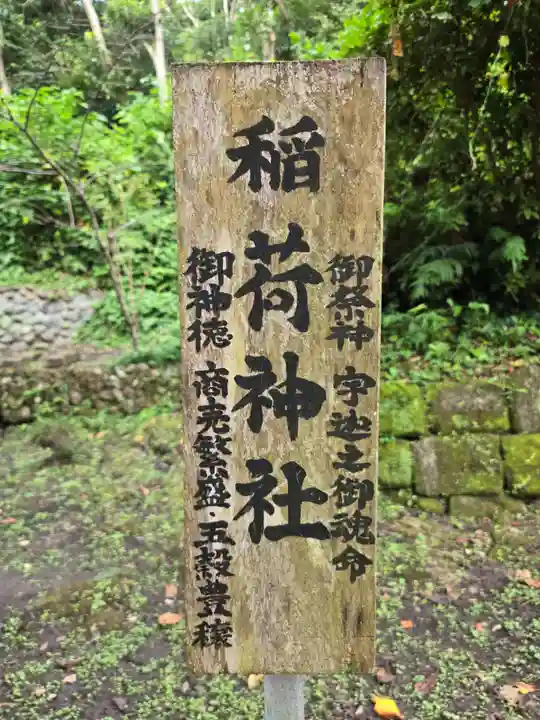 御祭神 宇迦之御魂命
稲荷神社
御神徳 商売繁盛・五穀豊穣